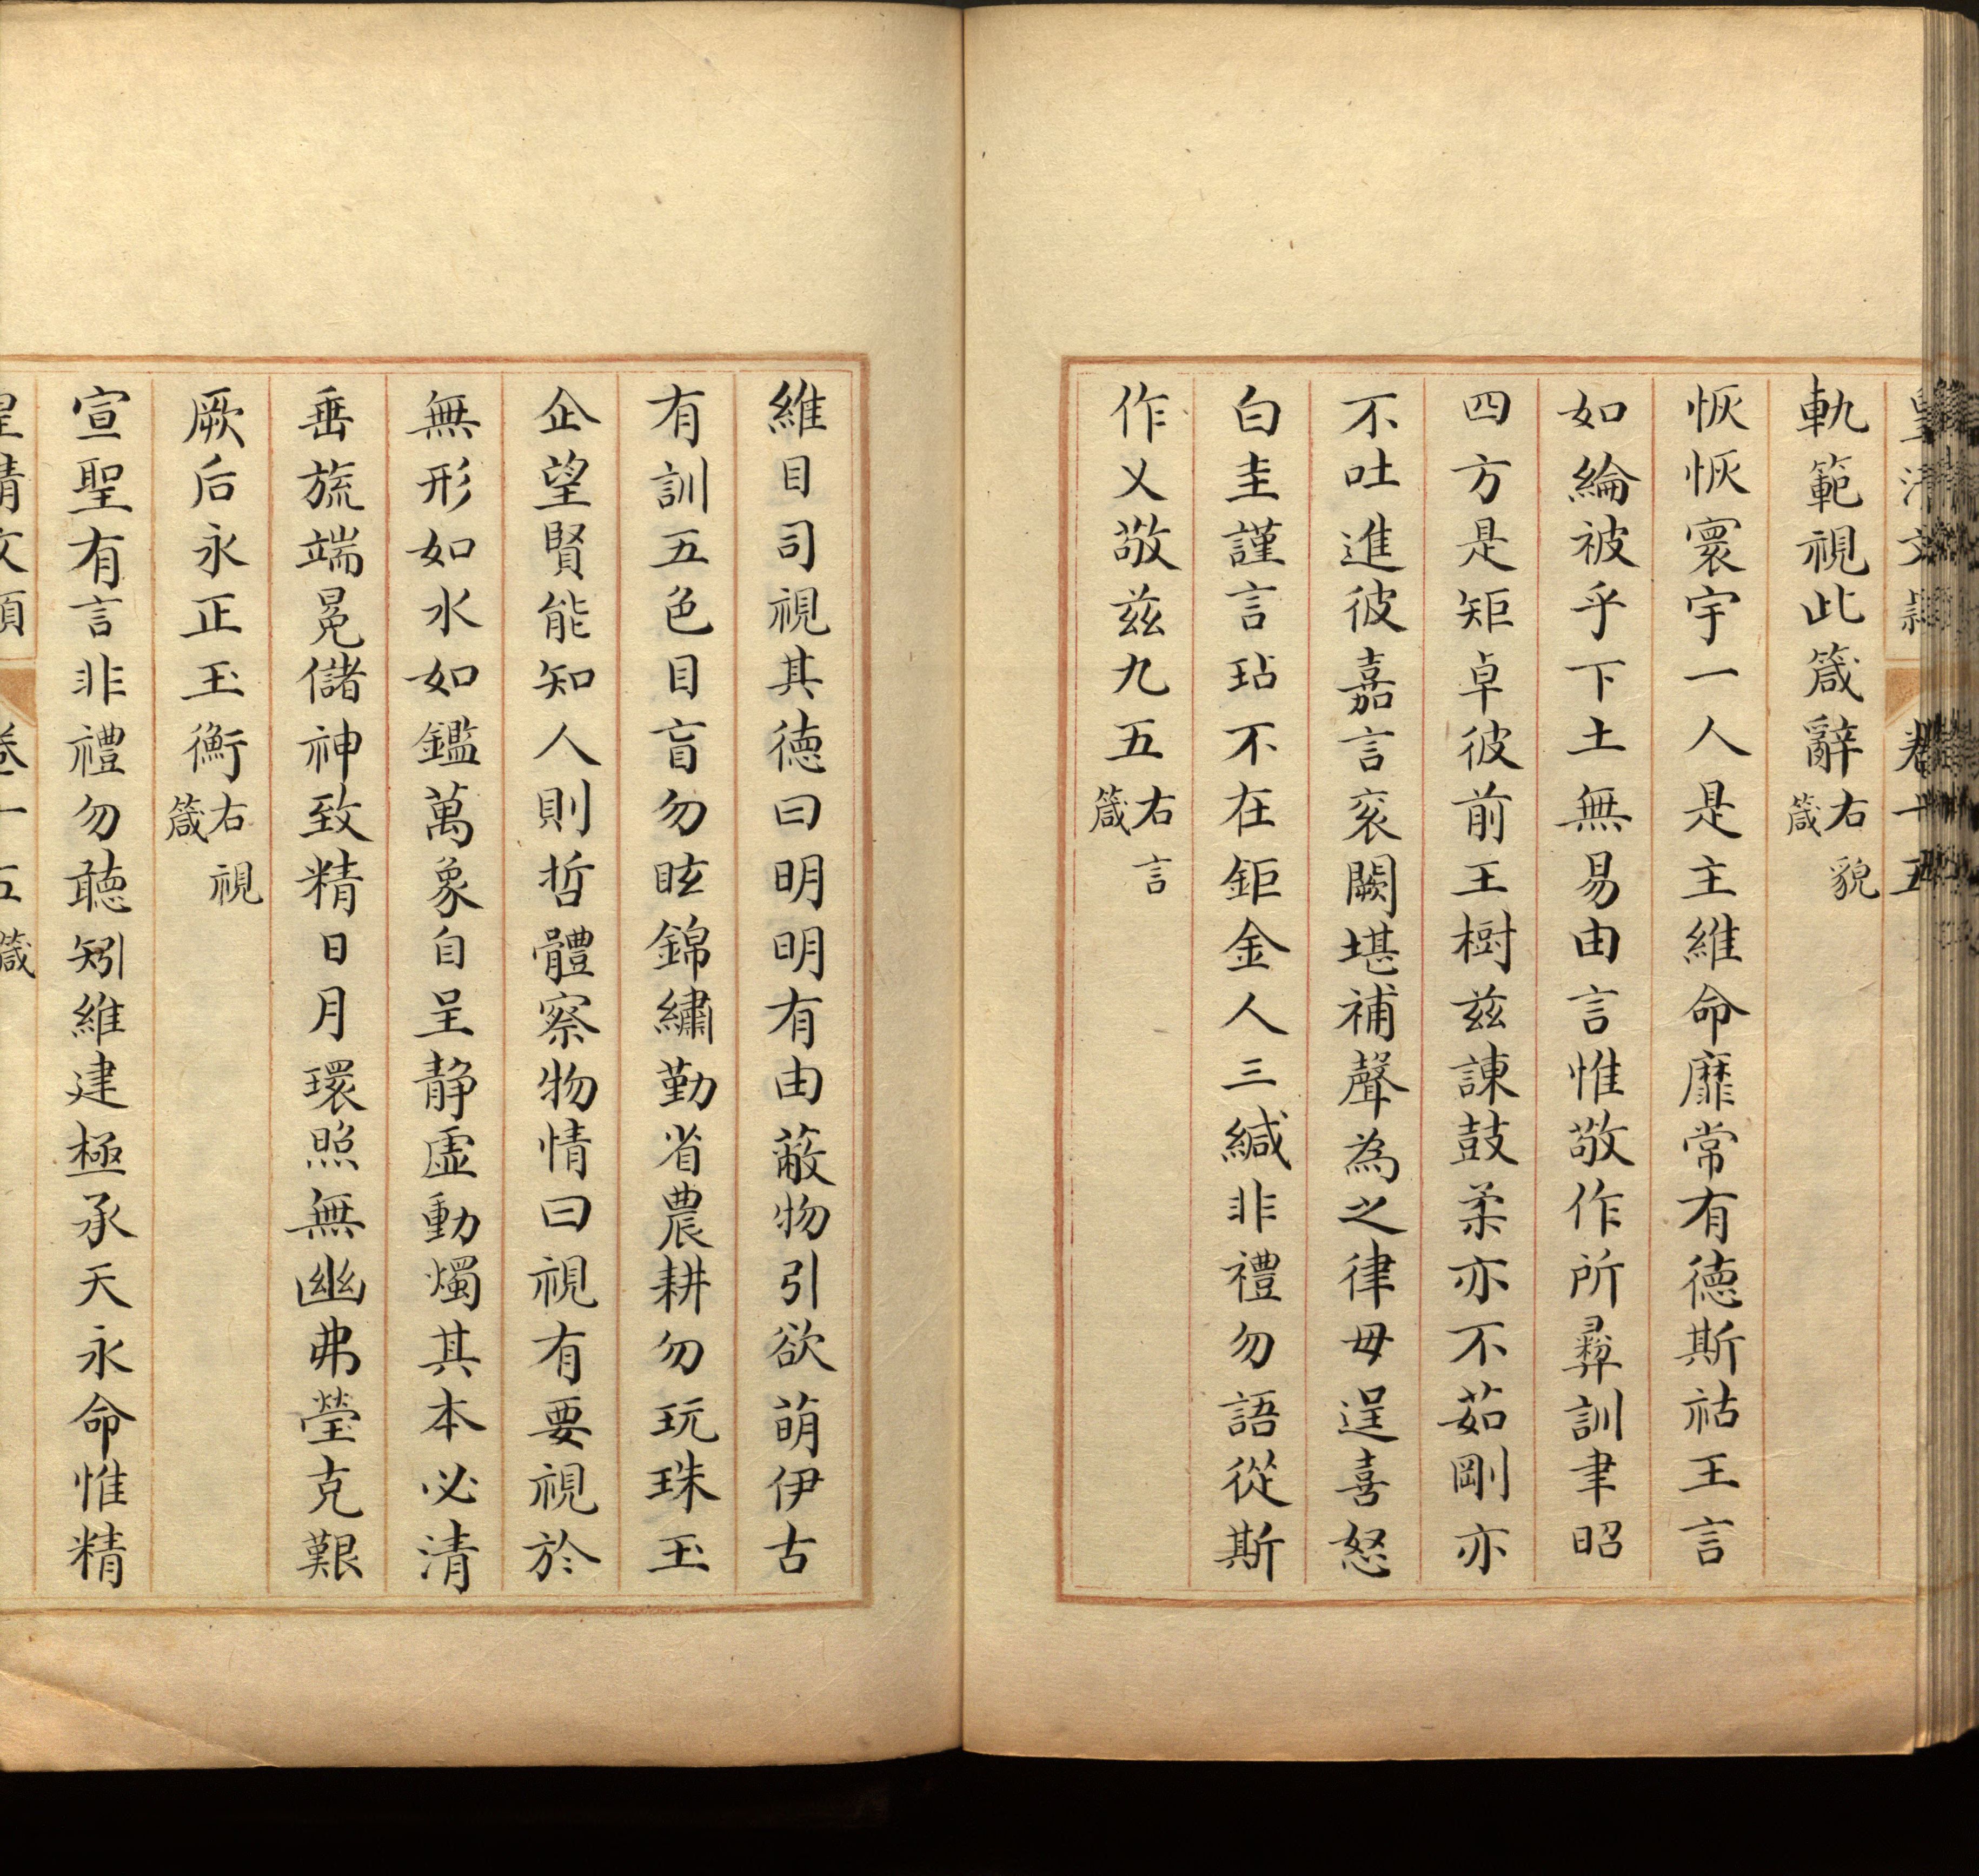 皇清文穎 卷十五
軌範視此箴辭右貌箴
恢恢寰宇一人是主維命靡常有德斯祜王言
如綸被乎下土無易由言惟敬作所彞訓聿昭
四方是矩卓彼前王樹兹諫鼓柔亦不茹剛亦
不吐進彼嘉言衮闕堪補聲為之律毋逞喜怒
白圭謹言玷不在鉅金人三緘非禮勿語從斯
作乂敬兹九五右言箴
維目司視其徳曰明明有由蔽物引欲萌伊古
有訓五色目盲勿眩錦繡勤省農耕勿玩珠玉
企望賢能知人則哲體察物情曰視有要視於
無形如水如鑑萬象自呈静虛動燭其本必清
垂旒端冕儲神致精日月環照無幽弗瑩克艱
厥后永正玉衡右視箴
宣聖有言非禮勿聽矧維建極承天永命惟精
皇清文穎 卷十五 箴